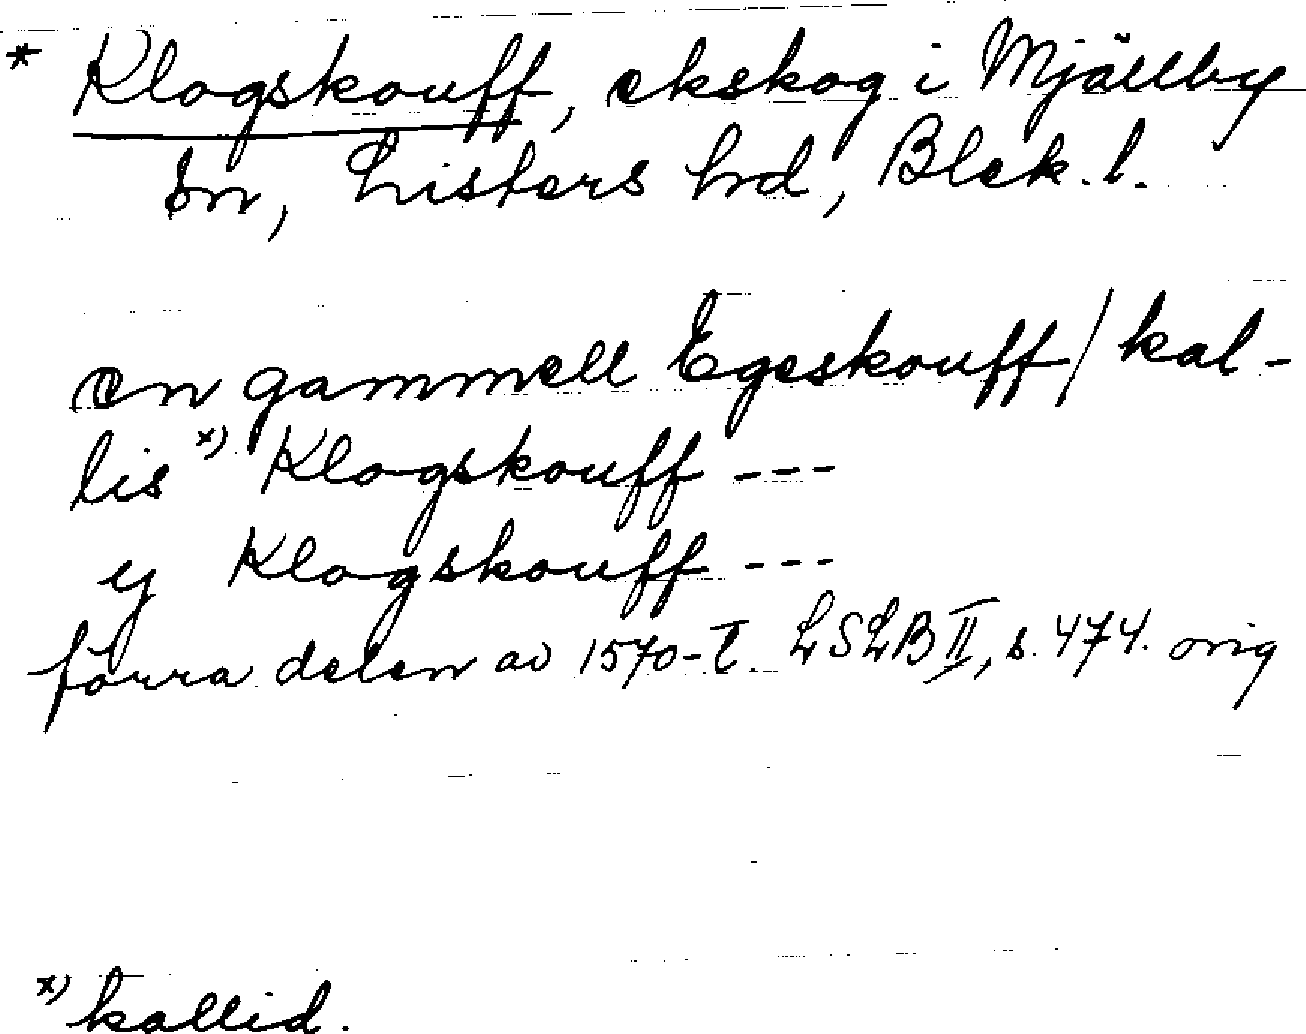 * Klogskouff, ekskog i Mjällby
sn, Listers hd, Blek. l.
en gammell Egeskouff/ kal-
lis x) Klogskouff ---
y Klogskouff ---
förra delen av 1570-t. LSLB II, s. 474. orig
x) kallid.